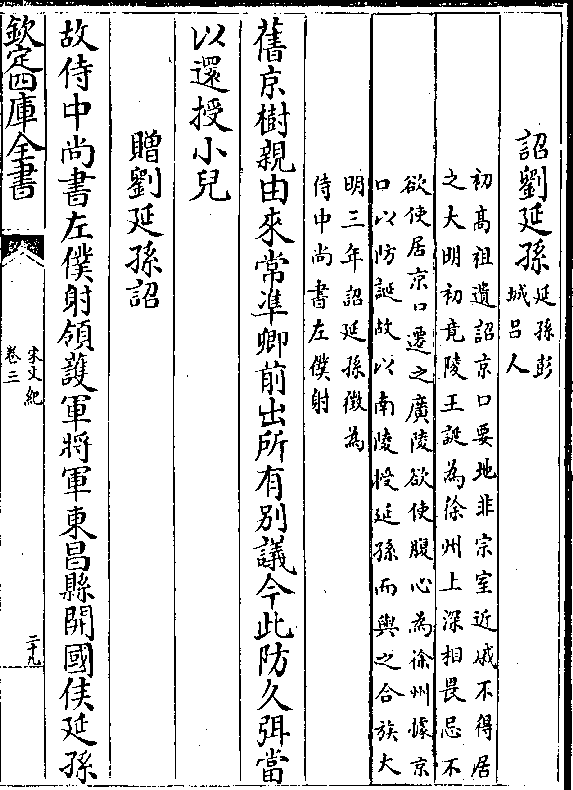 詔劉延孫延孫彭
城呂人
初髙祖遺詔京口要地非宗室近戚不得居
之大明初竟陵王誕為徐州上深相畏忌不
欲使居京口遷之廣陵欲使腹心為徐州㩀京
口以防誕故以南陵授延孫而與之合族大
明三年詔延孫徵為
侍中尚書左僕射
舊京樹親由來常準卿前出所有别議今此防久弭當
以還授小兒
贈劉延孫詔
故侍中尚書左僕射領護軍將軍東昌縣開國侯延孫
欽定四庫全書
宋文紀
卷三
二十九